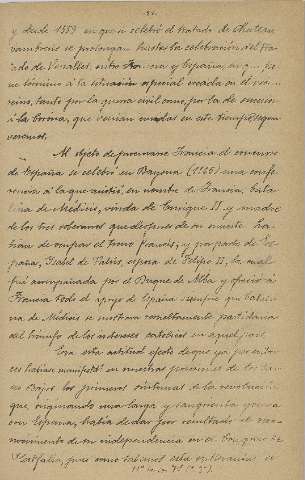 y desde 1559 en que se celebró el tratado de Chateau
cambresis se prolonga hasta la celebración del tra
tado de Vervins, entre Francia y España, en que se
puso término á la situación especial creada en el
reino, tanto por la guerra civil como por la de sucesión
á la corona, que venían unidas en este tiempo, según
veremos.
Al objeto de procurarse Francia el concurso
de España se celebró en Bayona (1565) una confe
rencia á la que asistió, en nombre de Francia, Cata
lina de Médicis, viuda de Enrique II, y madre
de los tres soberanos que después de su muerte ha
bían de ocupar el trono francés; y por parte de Es
paña, Isabel de Valois, esposa de Felipe II, la cual
fué acompañada por el Duque de Alba y ofreció á
Francia todo el apoyo de España siempre que Catali
na de Médicis se mostrara constantemente partidaria
del triunfo de los intereses católicos en aquel país.
Era esta actitud efecto de que ya por enton
ces habían manifestado en muchas provincias de los Paí
ses Bajos los primeros síntomas de la revolución
que, originando una larga y sangrienta guerra
con España, había de dar por resultado el reco
nocimiento de su independencia en el Congreso de
Westfalia, pues como sabemos